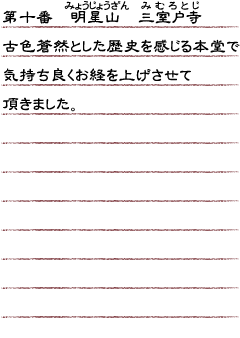 みょうじょうざん みむろとじ
第十番 明星山 三室户寺
古色蒼然とした歴史を感じる本堂で
気持ち良くお経を上げさせて
頂きました。